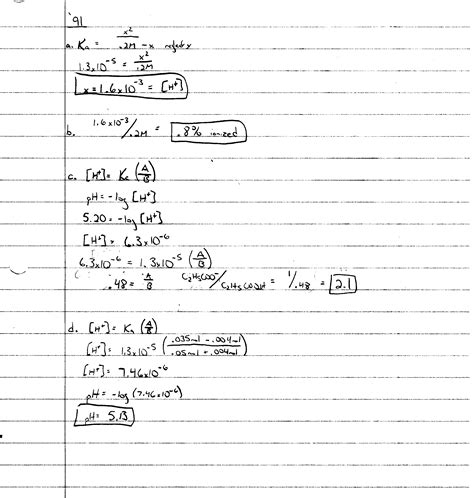 '91
a. Ka = x² / .2M - x neglect x
1.3x10⁻⁵ = x² / .2M
x = 1.6x10⁻³ = [H⁺]
b. 1.6x10⁻³ / .2M = .8% ionized
c. [H⁺] = Ka (A/B)
pH = -log [H⁺]
5.20 = -log [H⁺]
[H⁺] = 6.3x10⁻⁶
6.3x10⁻⁶ = 1.3x10⁻⁵ (A/B)
.48 = A/B C₂H₅COO⁻ / C₂H₅COOH = 1/.48 = 2.1
d. [H⁺] = Ka (A/B)
[H⁺] = 1.3x10⁻⁵ (.035mol - .004mol / .05mol + .004mol)
[H⁺] = 7.46x10⁻⁶
pH = -log (7.46x10⁻⁶)
pH = 5.13